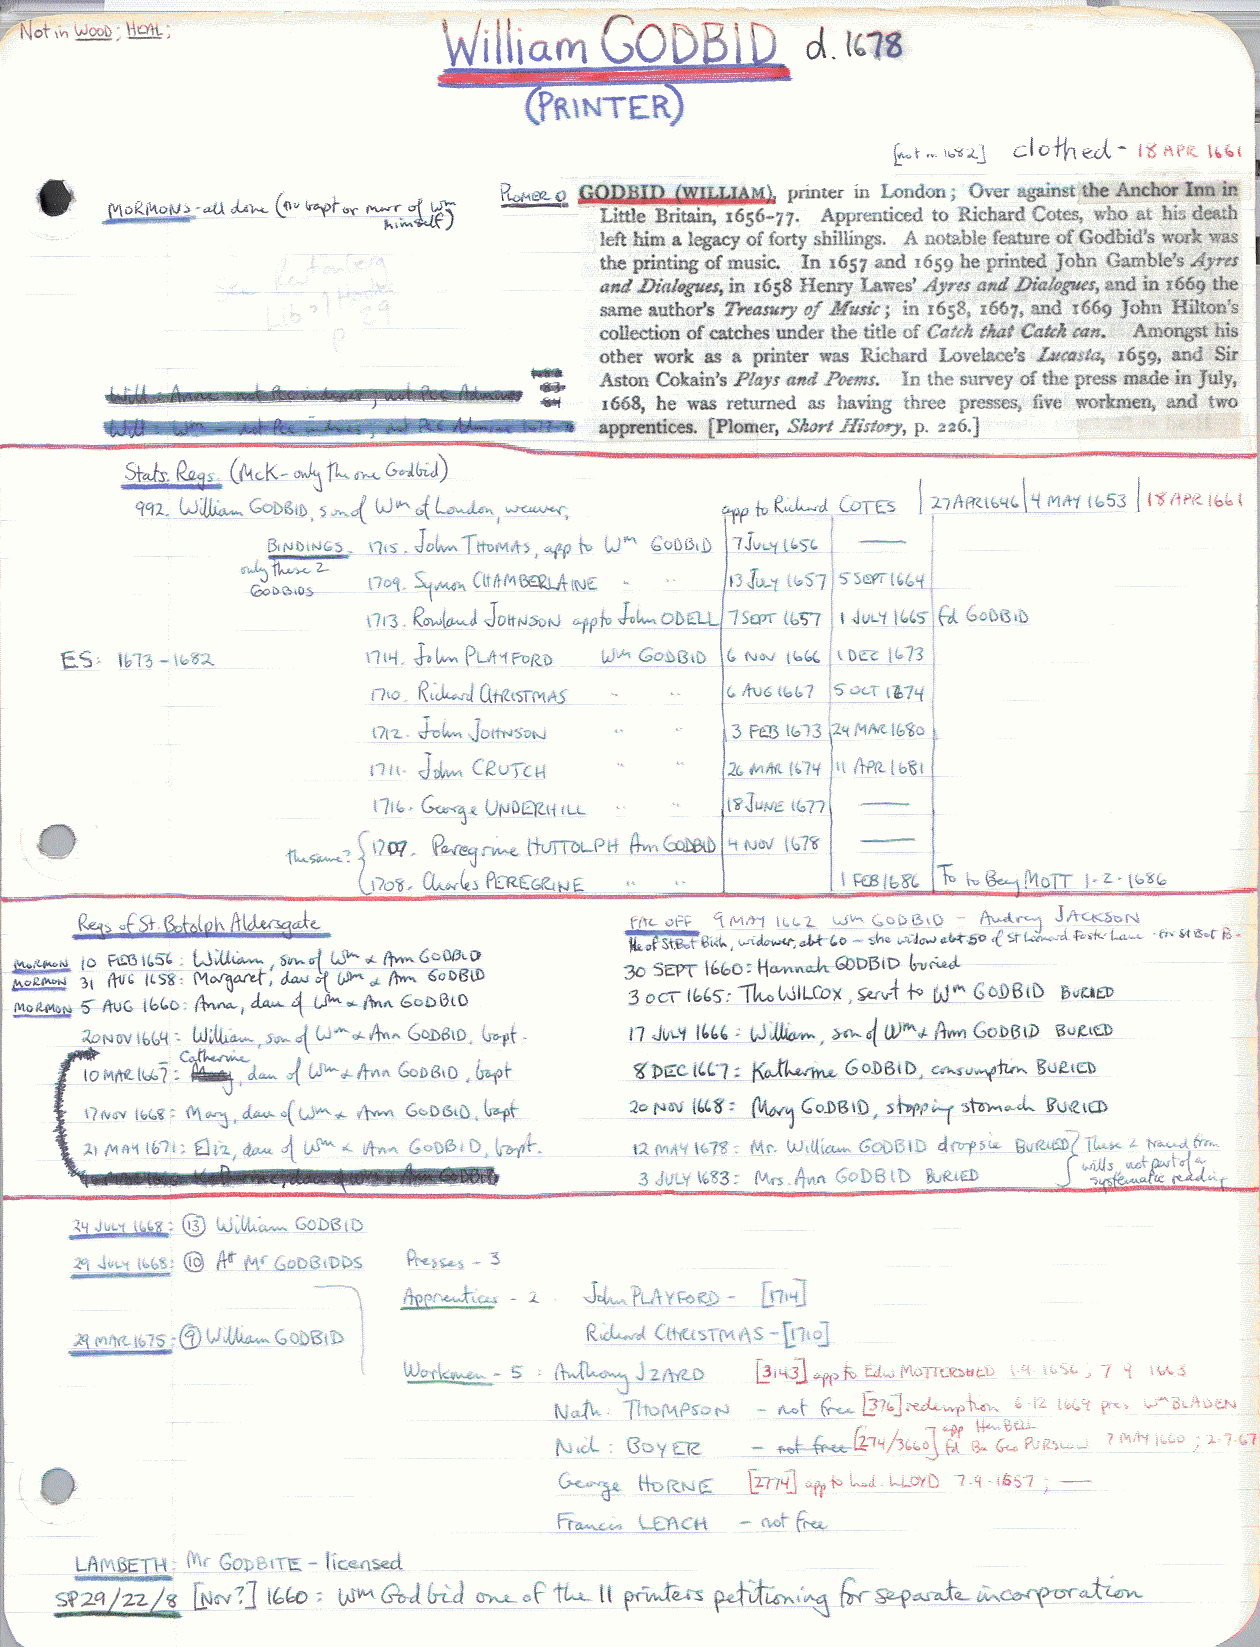 Not in WOOD; HEAL;
William GODBID d. 1678
(PRINTER)
[not in 1682] clothed - 18 APR 1661
MORMONS - all done (no bapt or marr of Wm himself)
PLOMER GODBID (WILLIAM), printer in London; Over against the Anchor Inn in
Little Britain, 1656-77. Apprenticed to Richard Cotes, who at his death
left him a legacy of forty shillings. A notable feature of Godbid's work was
the printing of music. In 1657 and 1659 he printed John Gamble's Ayres
and Dialogues, in 1658 Henry Lawes' Ayres and Dialogues, and in 1669 the
same author's Treasury of Music; in 1658, 1667, and 1669 John Hilton's
collection of catches under the title of Catch that Catch can. Amongst his
other work as a printer was Richard Lovelace's Lucasta, 1659, and Sir
Aston Cokain's Plays and Poems. In the survey of the press made in July,
1668, he was returned as having three presses, five workmen, and two
apprentices. [Plomer, Short History, p. 226.]
Stats. Regs. (McK - only the one Godbid)
992. William GODBID, son of Wm of London, weaver, app to Richard COTES 27 APR 1646 4 MAY 1653 18 APR 1661
BINDINGS - 1715. John THOMAS, app to Wm GODBID 7 JULY 1656 —
only these 2 GODBIDS
1709. Symon CHAMBERLAINE " " 13 July 1657 5 SEPT 1664
1713. Rowland JOHNSON app to John ODELL 7 SEPT 1657 1 JULY 1665 fd GODBID
ES: 1673-1682
1714. John PLAYFORD Wm GODBID 6 NOV 1666 1 DEC 1673
1710. Richard CHRISTMAS " " 6 AUG 1667 5 OCT 1674
1712. John JOHNSON " " 3 FEB 1673 24 MAR 1680
1711. John CRUTCH " " 26 MAR 1674 11 APR 1681
1716. George UNDERHILL " " 18 JUNE 1677 —
the same? { 1707. Peregrine HUTTOLPH Ann GODBID 4 NOV 1678 —
1708. Charles PEREGRINE " " 1 FEB 1686 To to Benj MOTT 1-2-1686
Regs of St. Botolph Aldersgate
MORMON 10 FEB 1656: William, son of Wm & Ann GODBID
MORMON 31 AUG 1658: Margaret, dau of Wm & Ann GODBID
MORMON 5 AUG 1660: Anna, dau of Wm & Ann GODBID
20 NOV 1664: William, son of Wm & Ann GODBID, bapt.
Catherine
10 MAR 1667: Mary, dau of Wm & Ann GODBID, bapt
17 NOV 1668: Mary, dau of Wm & Ann GODBID, bapt
21 MAY 1671: Eliz, dau of Wm & Ann GODBID, bapt.
FAC OFF 9 MAY 1662 Wm GODBID - Audrey JACKSON
He of St Bot Bish, widower, abt 60 - she widow abt 50 of St Leonard Foster Lane
30 SEPT 1660: Hannah GODBID buried
3 OCT 1665: Tho WILCOX, servt to Wm GODBID BURIED
17 JULY 1666: William, son of Wm & Ann GODBID BURIED
8 DEC 1667: Katherine GODBID, consumption BURIED
20 NOV 1668: Mary GODBID, stopping stomach BURIED
12 MAY 1678: Mr. William GODBID dropsie BURIED
3 JULY 1683: Mrs. Ann GODBID BURIED
These 2 traced from wills, not part of a systematic reading
24 JULY 1668: (13) William GODBID
29 JULY 1668: (10) Att Mr GODBIDDS Presses - 3
Apprentices - 2 John PLAYFORD - [1714]
29 MAR 1675: (9) William GODBID
Richard CHRISTMAS - [1710]
Workmen - 5: Anthony IZARD [3143] app to Edw MOTTERSHED 1-9-1656; 7 9 1663
Nath: THOMPSON - not free [376] redemption 6-12 1669 pres Wm BLADEN
app Hen BELL
Nich: BOYER - not free [274/3660] fd by Geo PURSLOW 7 MAY 1660; 2-7-67
George HORNE [2774] app to LLOYD 7-9-1657; —
Francis LEACH - not free
LAMBETH: Mr GODBITE - licensed
SP29/22/8 [Nov?] 1660: Wm Godbid one of the 11 printers petitioning for separate incorporation